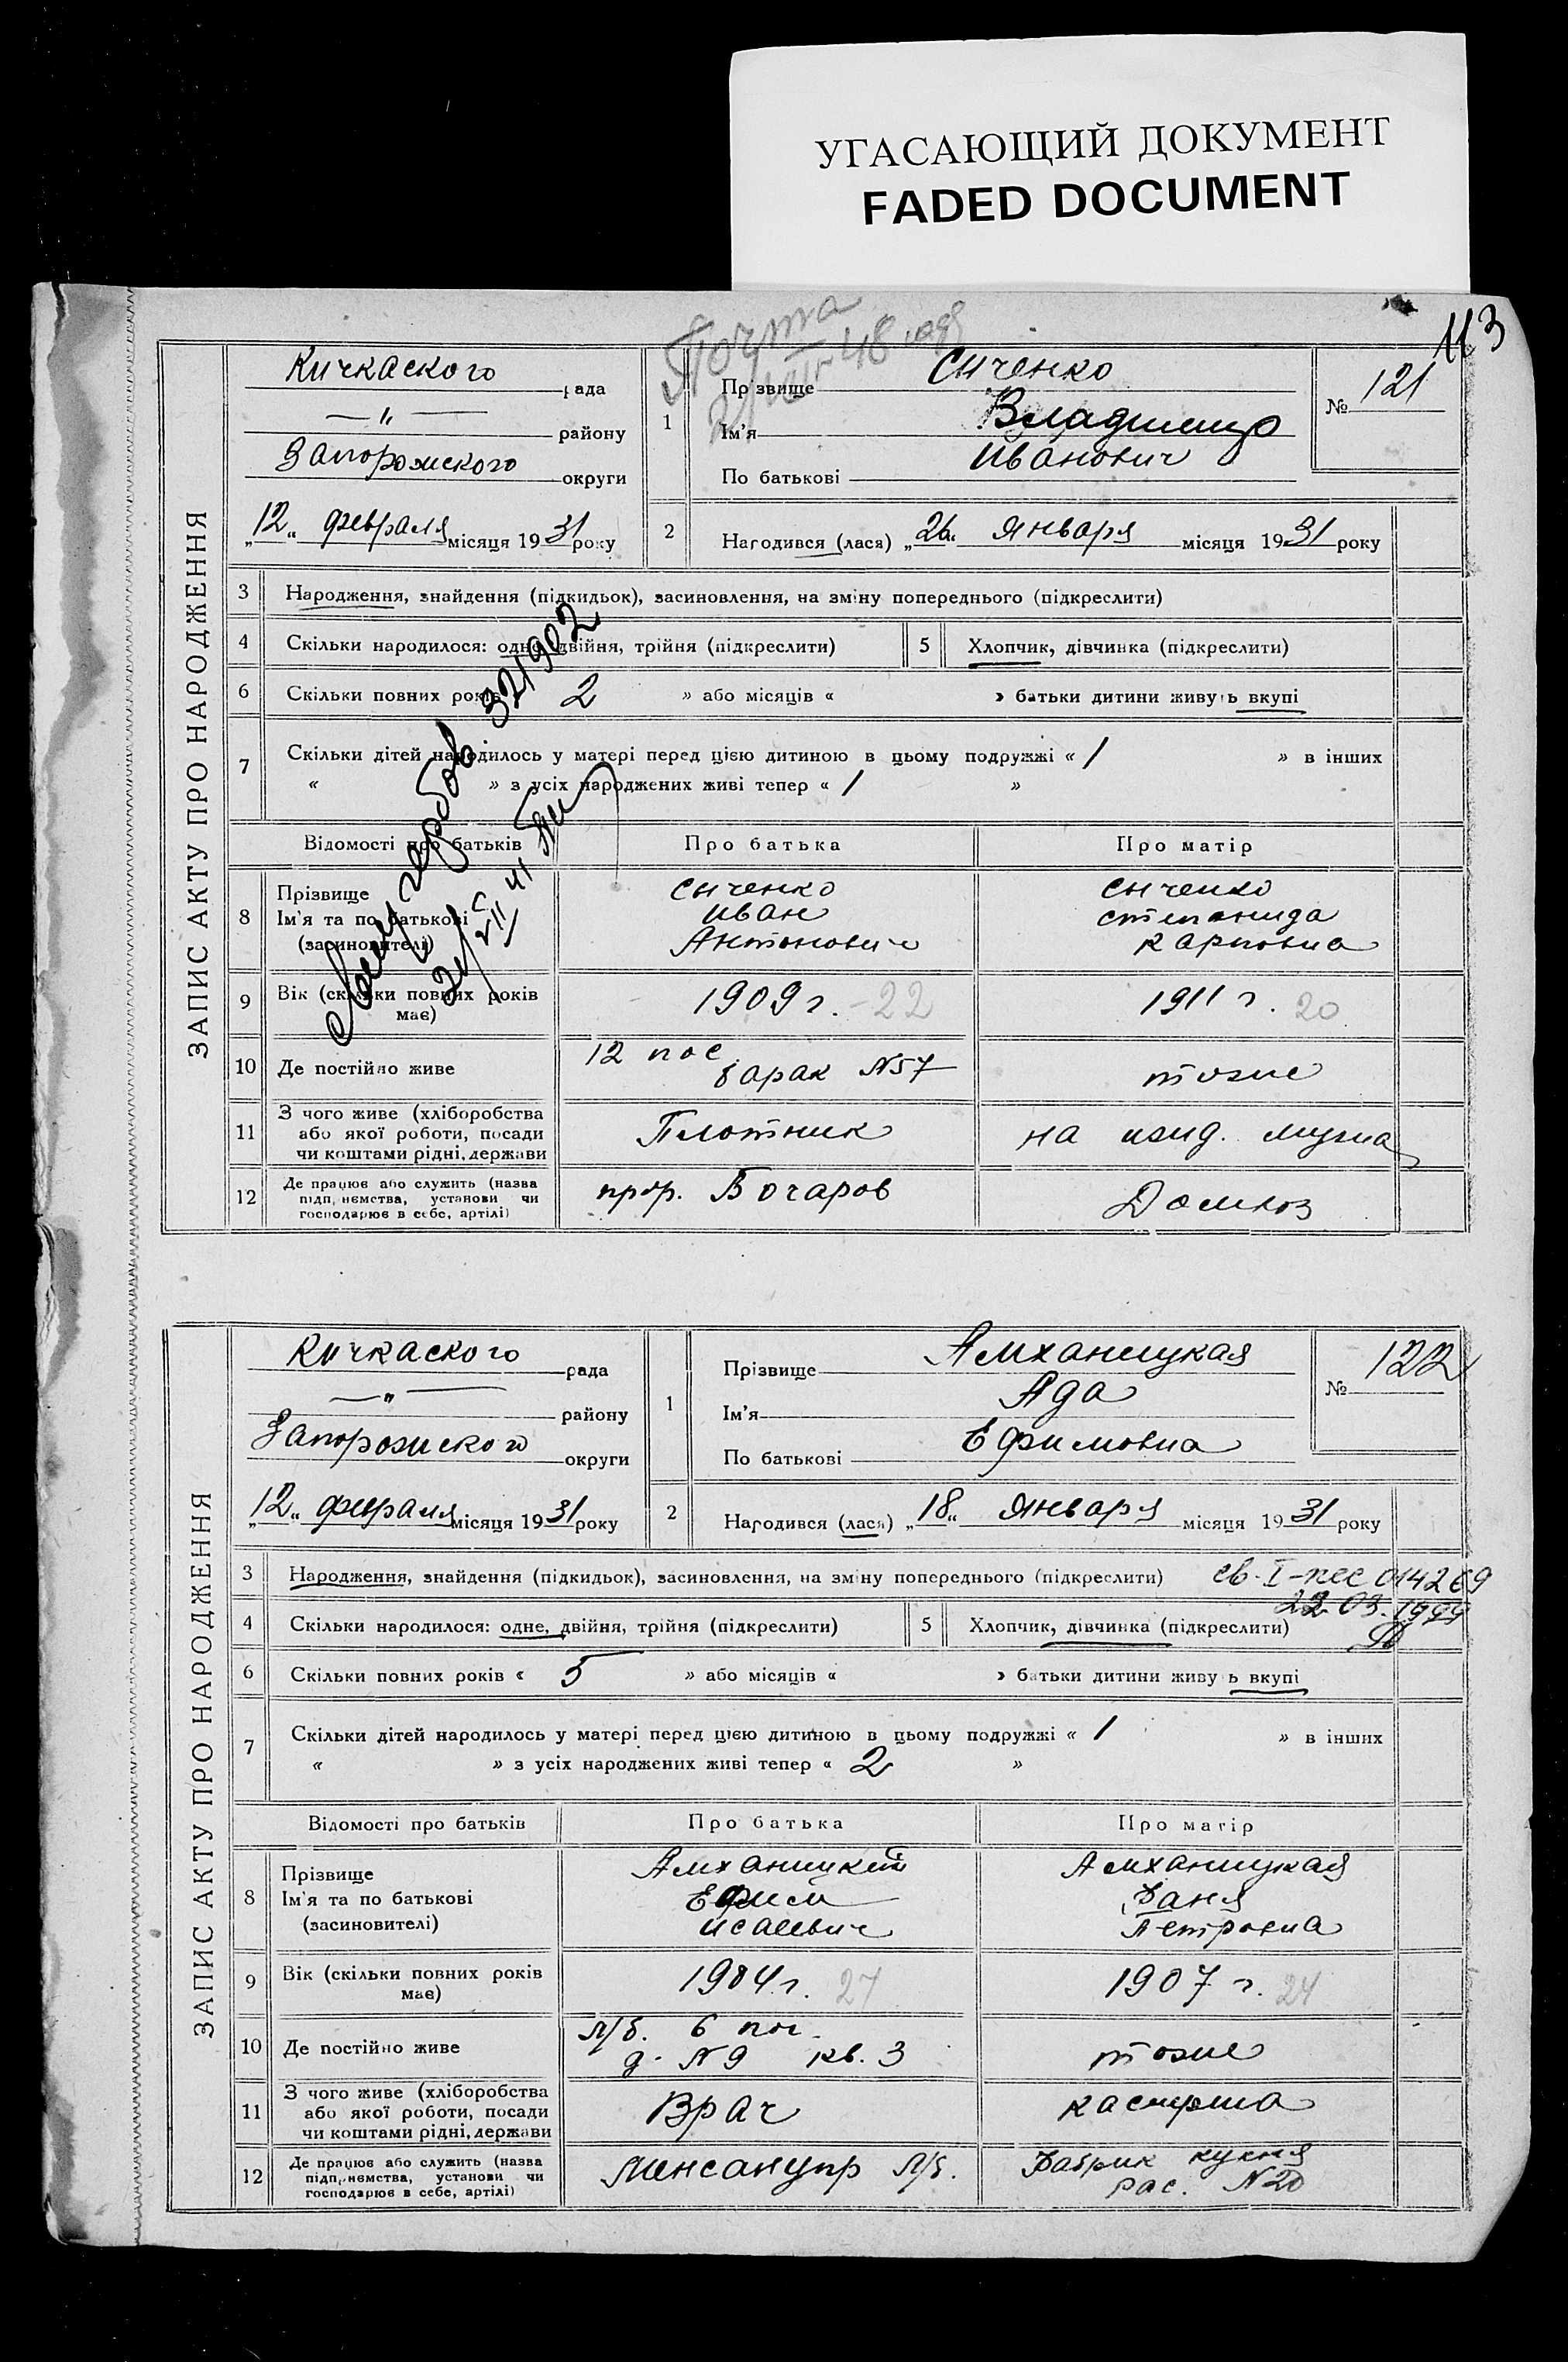 УГАСАЮЩИЙ ДОКУМЕНТ
FADED DOCUMENT
113
Почта
48
ЗАПИС АКТУ ПРО НАРОДЖЕННЯ
Кичкаского рада
— " — району
Запорожского округи
„12“ февраля місяця 1931 року
1
Прізвище Сыченко
Ім'я Владимир
По батькові Иванович
№ 121
2 Народився (лася) „26“ Января місяця 1931 року
3 Народження, знайдення (підкидьок), засиновлення, на зміну попереднього (підкреслити)
4 Скільки народилося: одно, двійня, трійня (підкреслити) 5 Хлопчик, дівчинка (підкреслити)
6 Скільки повних років 2 » або місяців « » батьки дитини живуть вкупі
7 Скільки дітей народилось у матері перед цією дитиною в цьому подружжі « 1 » в інших
« » з усіх народжених живі тепер « 1 »
321902
Відомості про батьків Про батька Про матір
8 Прізвище Сыченко Сыченко
Ім'я та по батькові Иван Степанида
(засиновителі) Антонович Карповна
9 Вік (скільки повних років має) 1909 г. – 22 1911 г. 20
10 Де постійно живе 12 пос барак N57 тоже
11 З чого живе (хліборобства Плотник на ижд. мужа
або якої роботи, посади
чи коштами рідні, держави
12 Де працює або служить (назва прор. Бочаров Домхоз
підпр,немства, установи чи
господарює в себе, артілі)
ЗАПИС АКТУ ПРО НАРОДЖЕННЯ
Кичкаского рада
— " — району
Запорожского округи
„12“ февраля місяця 1931 року
1
Прізвище Амханицкая
Ім'я Ада
По батькові Ефимовна
№ 122
2 Народився (лася) „18“ Января місяця 1931 року
3 Народження, знайдення (підкидьок), засиновлення, на зміну попереднього (підкреслити) св. I-
014269
22.03.1999
4 Скільки народилося: одне, двійня, трійня (підкреслити) 5 Хлопчик, дівчинка (підкреслити)
6 Скільки повних років « 5 » або місяців « » батьки дитини живуь вкупі
7 Скільки дітей народилось у матері перед цією дитиною в цьому подружжі « 1 » в інших
« » з усіх народжених живі тепер « 2 »
Відомості про батьків Про батька Про матір
8 Прізвище Амханицкий Амханицкая
Ім'я та по батькові Ефим Фаня
(засиновителі) Исаевич Петровна
9 Вік (скільки повних років має) 1904 г. 27 1907 г. 24
10 Де постійно живе л/б. 6 пос. д. N9 кв. 3 тоже
11 З чого живе (хліборобства Врач кассирша
або якої роботи, посади
чи коштами рідні, держави
12 Де працює або служить (назва Менсанупр л/б. Фабрик кухня
підпр,немства, установи чи рас. N20
господарює в себе, артілі)